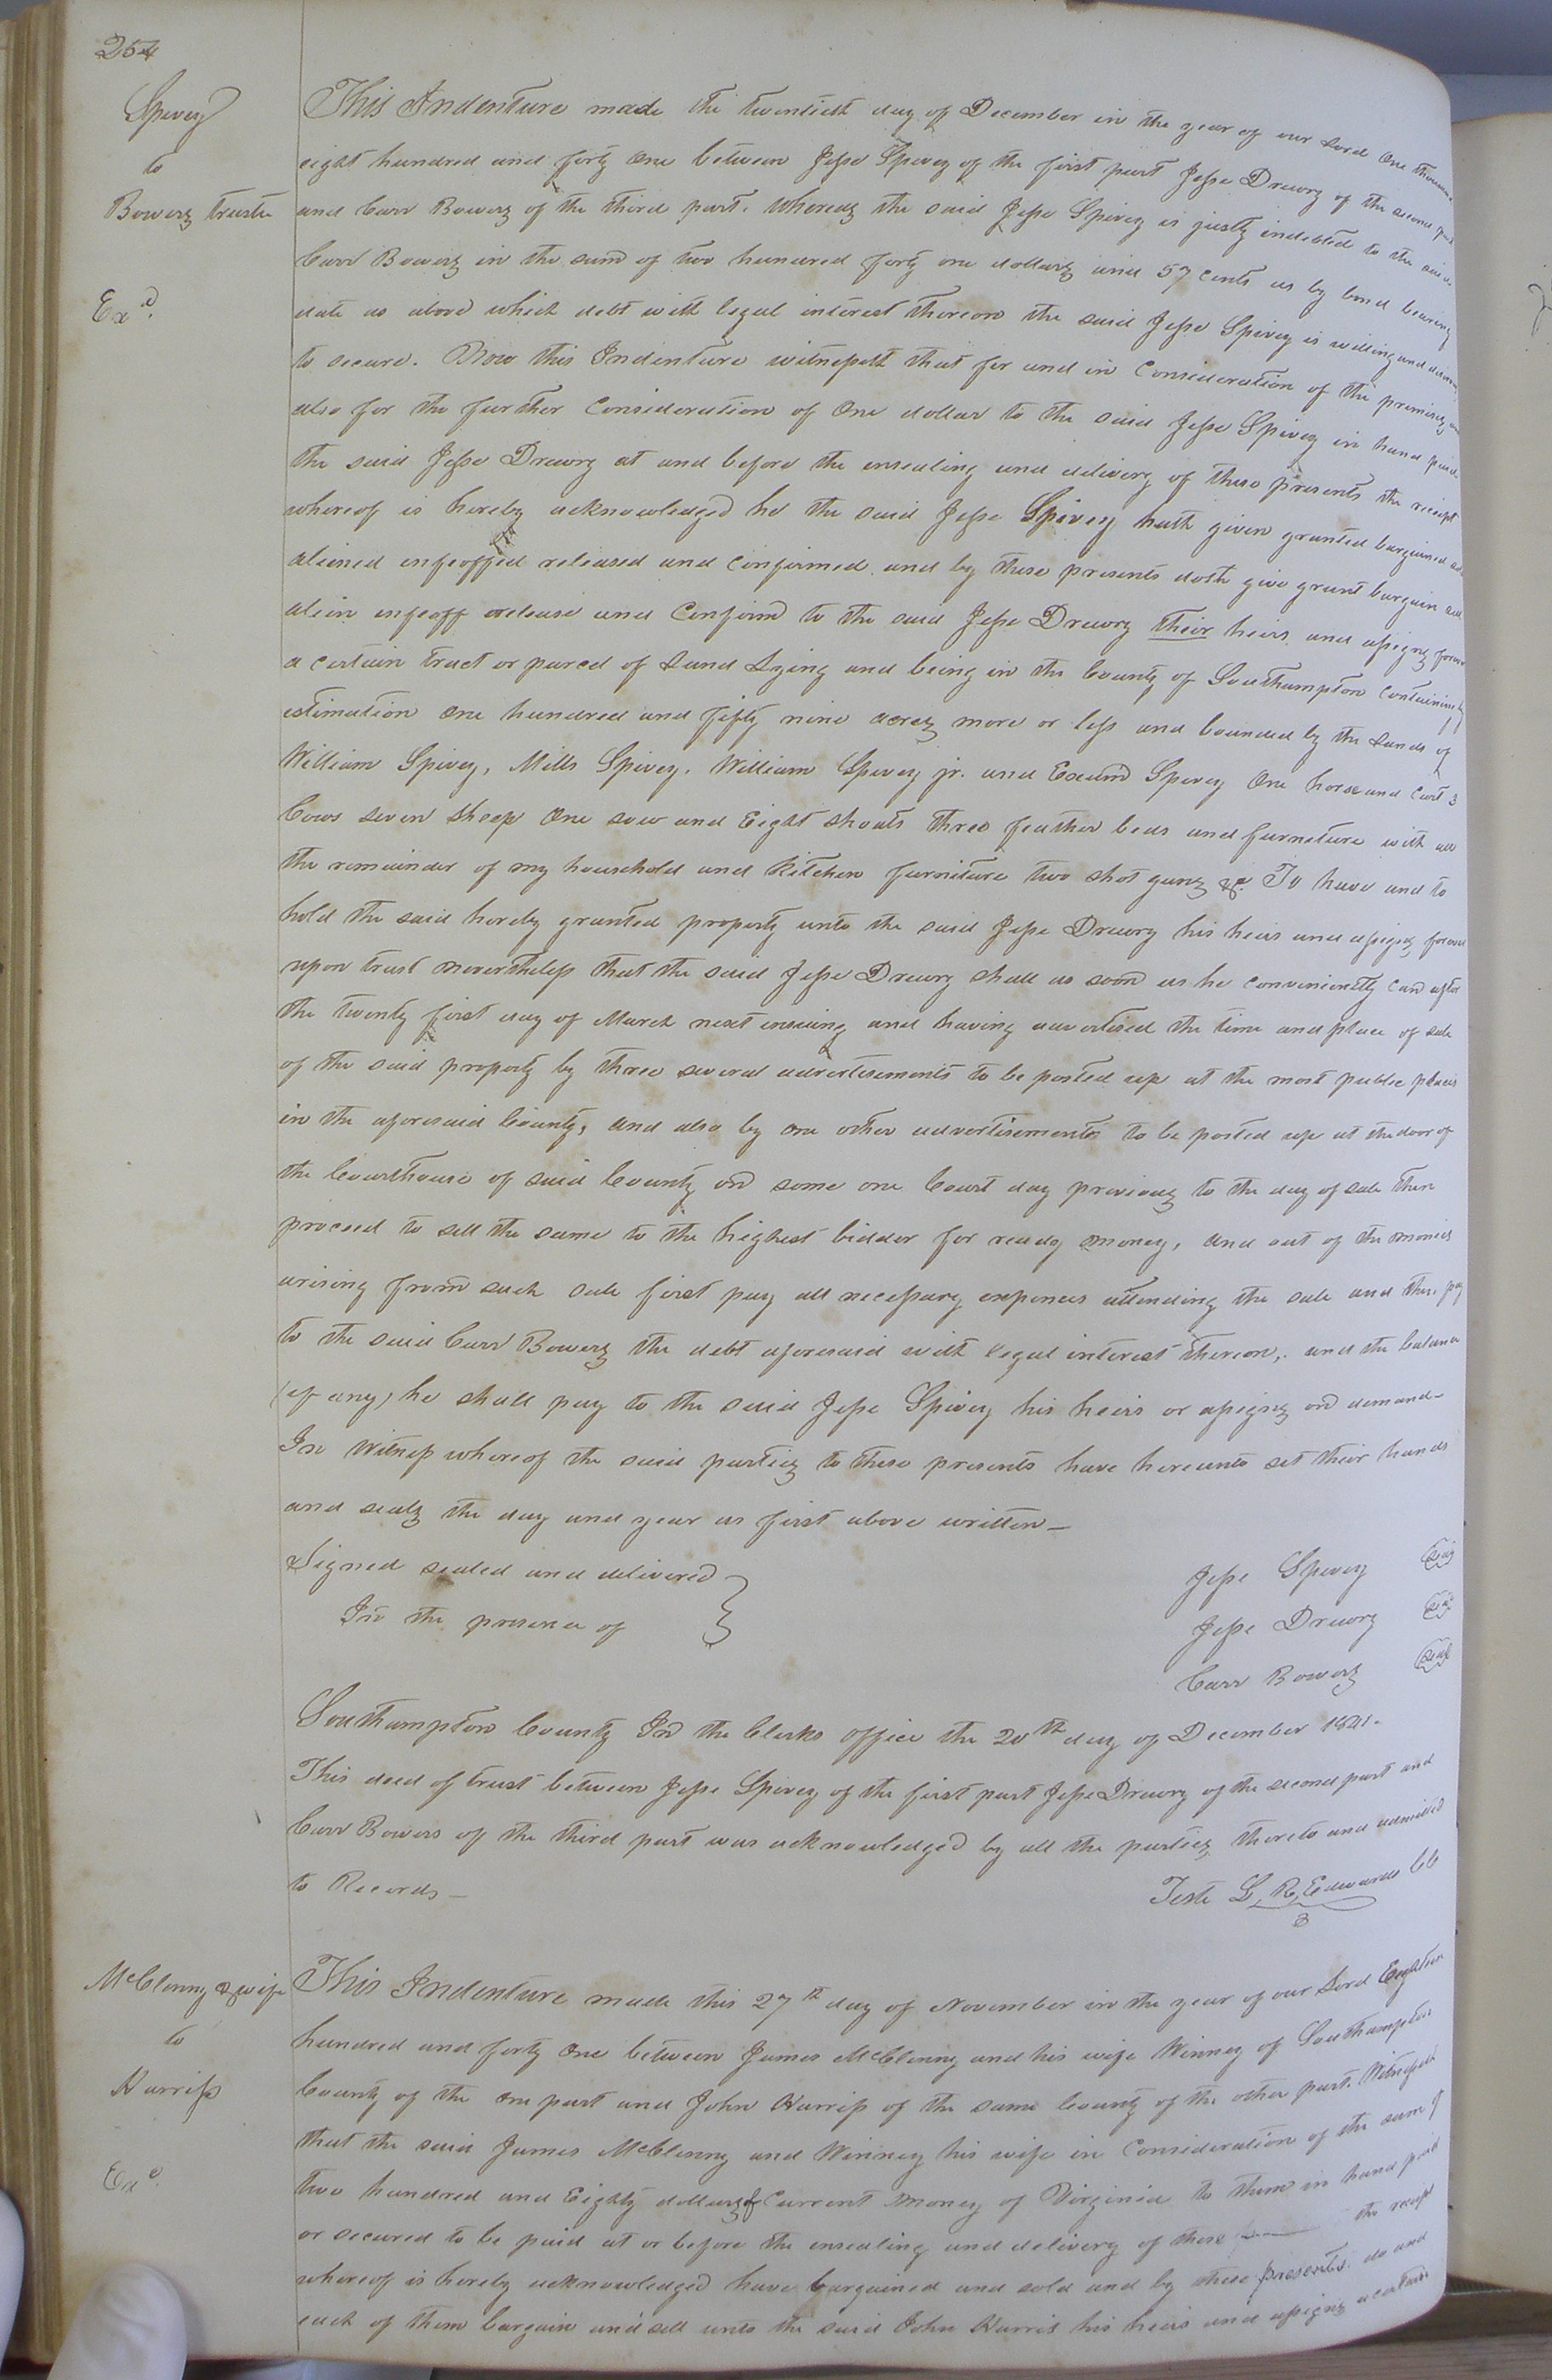 254
Spivey
to
Bowers trustee
Exd.
This Indenture made the twentieth day of December in the year of our Lord One thousand
eight hundred and forty one between Jesse Spivey of the first part Jesse Drewry of the second part
and Carr Bowers of the third part. Whereas the said Jesse Spivey is justly indebted to the said
Carr Bowers in the sum of two hundred forty one dollars and 57 cents as by bond bearing
date as above which debt with legal interest thereon the said Jesse Spivey is willing and
to secure. Now this Indenture witnesseth that for and in Consideration of the premises and
also for the further Consideration of One dollar to the said Jesse Spivey in hand paid
the said Jesse Drewry at and before the ensealing and delivery of these presents the receipt
whereof is hereby acknowledged he the said Jesse Spivey hath given granted bargained sold
aliened enfeoffed released and Confirmed and by these presents doth give grant bargain sell
alien enfeoff release and Confirm to the said Jesse Drewry their heirs and assigns forever
a certain tract or parcel of Land Lying and being in the County of Southampton Containing by
estimation one hundred and fifty nine acres more or less and bounded by the Lands of
William Spivey, Mills Spivey, William Spivey jr. and Exum Spivey One horse and Cart 3
Cows seven sheep One sow and Eight shoats three feather beds and furniture with all
the remainder of my household and Kitchen furniture two shot guns &c. To have and to
hold the said hereby granted property unto the said Jesse Drewry his heirs and assigns forever
upon trust nevertheless that the said Jesse Drewry shall as soon as he conveniently can after
the twenty first day of March next ensuing and having advertised the time and place of sale
of the said property by three several advertisements to be posted up at the most public places
in the aforesaid County, and also by one other advertisements to be posted up at the door of
the Courthouse of said County on some one Court day previous to the day of sale then
proceed to sell the same to the highest bidder for ready money, and out of the monies
arising from such sale first pay all necessary expences attending the sale and then pay
to the said Carr Bowers the debt aforesaid with legal interest thereon, and the balance
(if any) he shall pay to the said Jesse Spivey his heirs or assigns on demand—
In Witness whereof the said parties to these presents have hereunto set their hands
and seals the day and year as first above written—
Signed sealed and delivered
In the presence of
Jesse Spivey Seal
Jesse Drewry Seal
Carr Bowers Seal
Southampton County In the Clerks office the 20th day of December 1841.
This deed of trust between Jesse Spivey of the first part Jesse Drewry of the second part and
Carr Bowers of the third part was acknowledged by all the parties thereto and admitted
to Records—
Teste L. R. Edwards CC
McClenny & wife
to
Harriss
Exd.
This Indenture made this 27th day of November in the year of our Lord Eighteen
hundred and forty One between James McClenny and his wife Winney of Southampton
County of the one part and John Harriss of the same County of the other part. Witnesseth
that the said James McClenny and Winney his wife in Consideration of the sum of
two hundred and Eighty dollars of Current money of Virginia to them in hand paid
or secured to be paid at or before the ensealing and delivery of these —— the receipt
whereof is hereby acknowledged have bargained and sold and by these presents do and
each of them bargain and sell unto the said John Harris his heirs and assigns a certain